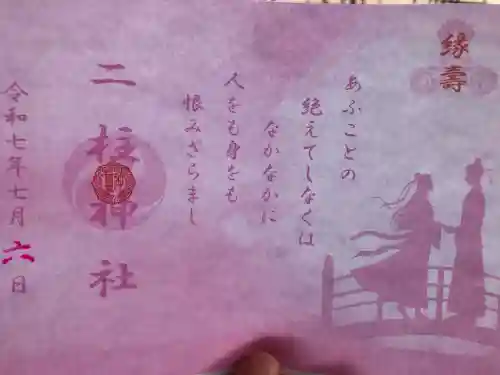 縁壽
あふことの
絶えてしなくは
なかなかに
人をも身をも
恨みざらまし
二柱神社
令和七年七月六日